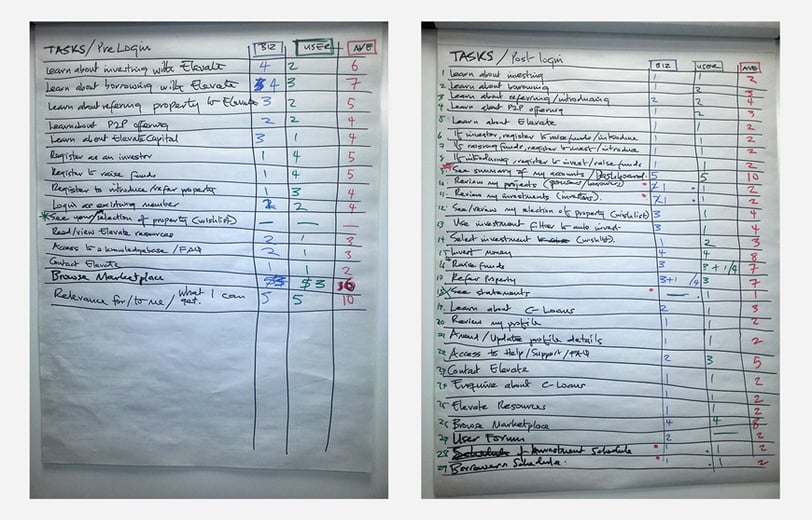 TASKS/PreLogin BIZ USER AVE
Learn about investing with Elevate 4 2 6
Learn about borrowing with Elevate 4 3 7
Learn about referring property to Elevate 3 2 5
Learn about P2P offering 2 2 4
Learn about Elevate Capital 3 1 4
Register as an investor 1 4 5
Register to raise funds 1 4 5
Register to introduce/refer property 1 3 4
Login as existing member 2 2 4
*See your/selection of property (wishlist) — — —
Read/view Elevate resources 2 1 3
Access to a knowledgebase/FAQ 2 1 3
Contact Elevate 1 1 2
Browse Marketplace 3 3 6
Relevance for/to me/what I can get. 5 5 10
TASKS/Post-login BIZ USER AVE
1 Learn about investing 1 1 2
2 Learn about borrowing 1 2 3
3 Learn about referring/introducing 2 2 4
4 Learn about P2P offering 1 2 3
5 Learn about Elevate 1 1 2
6 If investor, register to raise funds/introduce 1 1 2
7 If raising funds, register to invest/introduce 1 1 2
8 If introducing, register to invest/raise funds 1 1 2
9 See summary of my accounts/dashboard 5 5 10
10 Review my projects 1 1 2
11 Review my investments (investors). 1 1 2
12 See/review my selection of property (wishlist) 3 1 4
13 Use investment filter to auto invest 3 1 4
14 Select investment (wishlist). 1 2 3
15 Invest money 4 4 8
16 Raise funds 3 3+1/4 7
17 Refer Property 3+1/4 3 7
18 See statements — 1 1
19 Learn about C-Loans 2 1 3
20 Review my profile 1 1 2
21 Amend/Update profile details 1 1 2
22 Access to Help/Support/FAQ 2 3 5
23 Contact Elevate 1 1 2
24 Enquire about C-Loans 1 1 2
25 Elevate Resources 1 1 2
26 Browse Marketplace 4 4 8
27 User Forum 2 — 2
28 Investment Schedule 1 1 2
29 Borrowers Schedule. 1 1 2